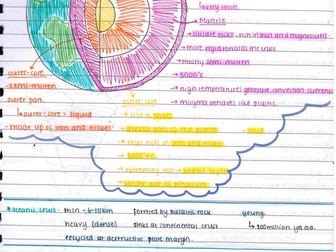 → very thin.
Mantle
→ silicate rocks - rich in iron and magnesium
→ more rigid towards the crust
→ mostly semi-molten
→ 5000°c
→ high temperatures generate convection currents
→ magma behaves like plastic.
outer-core
semi-molten
outer part.
→ outer-core = liquid
→ made up of iron and nickel
inner core
→ densest part of the planet
→ solid
→ iron and nickel
→ 5000°c
* oceanic crust - thin - 6-10km formed by volcanic rock young.
heavy (dense) sinks at continental crust ↳ 200million yrs old.
recycled at destructive plate margin.